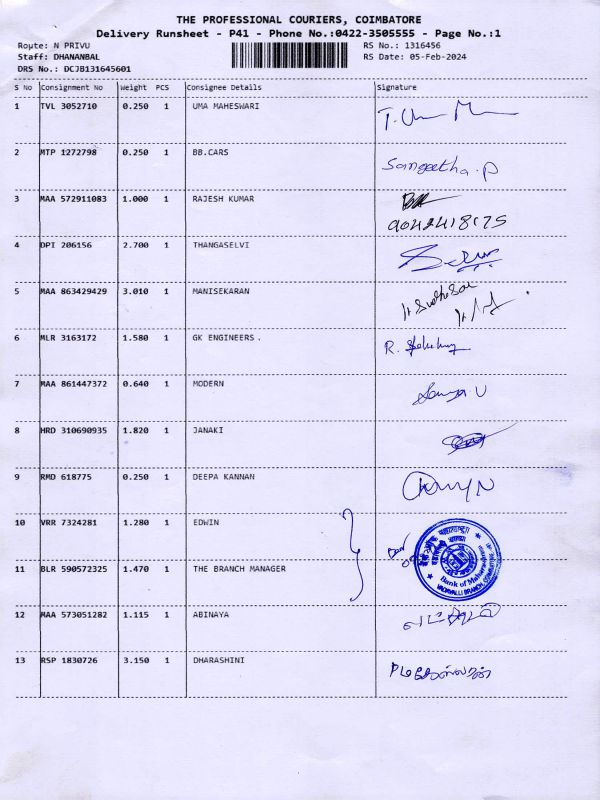 THE PROFESSIONAL COURIERS, COIMBATORE
Delivery Runsheet - P41 - Phone No.:0422-3505555 - Page No.:1
Route: N PRIVU RS No.: 1316456
Staff: DHANANBAL RS Date: 05-Feb-2024
DRS No.: DCJB131645601
S No Consignment No Weight PCS Consignee Details Signature
1 TVL 3052710 0.250 1 UMA MAHESWARI
2 MTP 1272798 0.250 1 BB.CARS Sangeetha.P
3 MAA 572911083 1.000 1 RAJESH KUMAR
9042418175
4 DPI 206156 2.700 1 THANGASELVI
5 MAA 863429429 3.010 1 MANISEKARAN
6 MLR 3163172 1.580 1 GK ENGINEERS. R.
7 MAA 861447372 0.640 1 MODERN
8 HRD 310690935 1.820 1 JANAKI
9 RMD 618775 0.250 1 DEEPA KANNAN
10 VRR 7324281 1.280 1 EDWIN
11 BLR 590572325 1.470 1 THE BRANCH MANAGER
Bank of Maharashtra
VADAVALLI BRANCH, COIMBATORE
12 MAA 573051282 1.115 1 ABINAYA
13 RSP 1830726 3.150 1 DHARASHINI